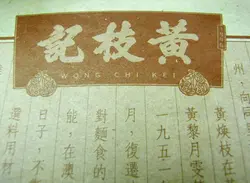 黃枝記
WONG CHI KEI
州
黃煥枝在
黃黎月雯
一九五一
月，復遷
對麵食的
能，在澳
日子，不